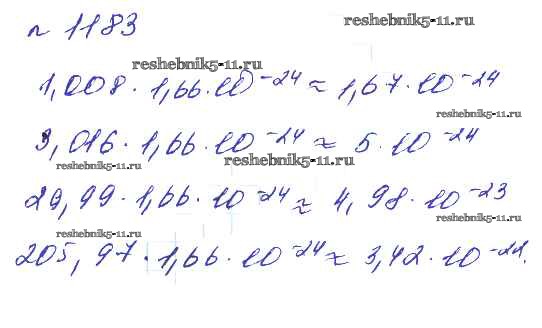 № 1183
reshebnik5-11.ru
reshebnik5-11.ru
1,008 · 1,66 · 10⁻²⁴ ≈ 1,67 · 10⁻²⁴
reshebnik5-11.ru
3,016 · 1,66 · 10⁻²⁴ ≈ 5 · 10⁻²⁴
reshebnik5-11.ru
reshebnik5-11.ru
29,99 · 1,66 · 10⁻²⁴ ≈ 4,98 · 10⁻²³
reshebnik5-11.ru
reshebnik5-11.ru
205,97 · 1,66 · 10⁻²⁴ ≈ 3,42 · 10⁻²².